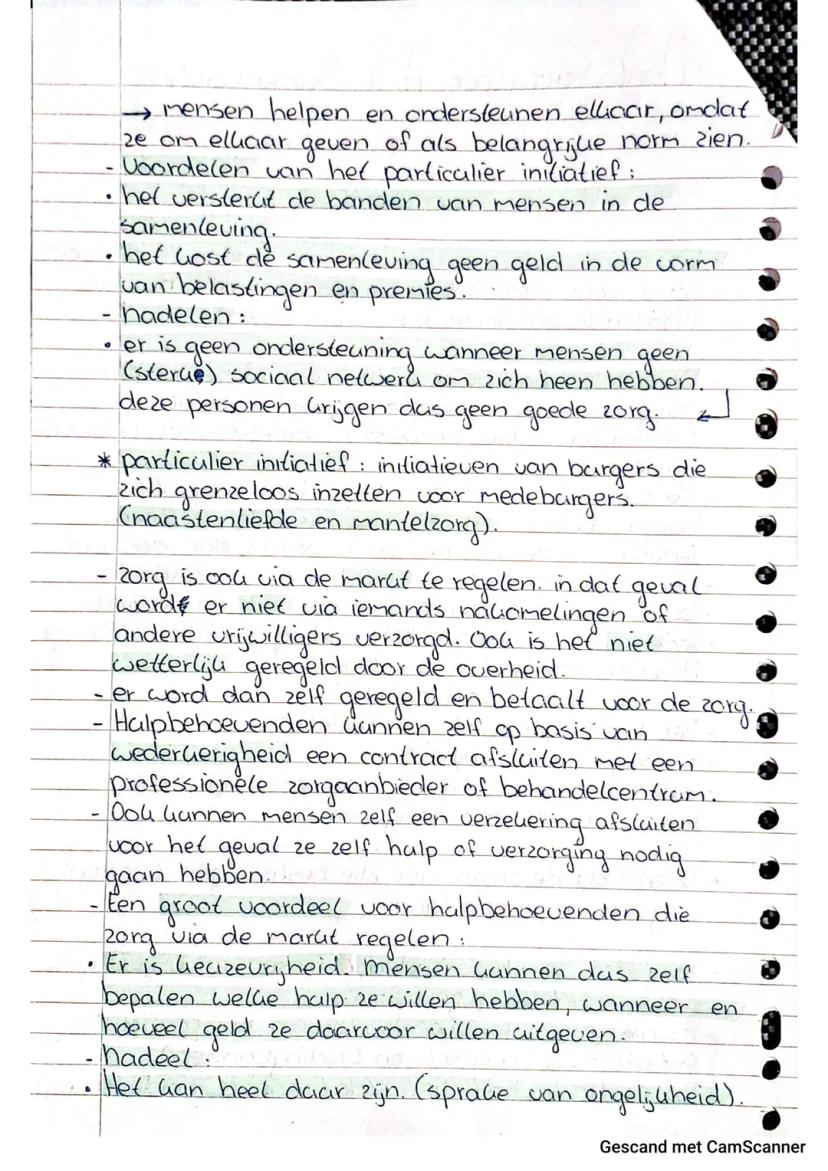 → mensen helpen en ondersteunen elkaar, omdat
ze om elkaar geven of als belangrijke norm zien.
- Voordelen van het particulier initiatief:
• het versterkt de banden van mensen in de
samenleving.
• het kost de samenleving geen geld in de vorm
van belastingen en premies.
- nadelen:
• er is geen ondersteuning wanneer mensen geen
(sterke) sociaal netwerk om zich heen hebben.
deze personen krijgen dus geen goede zorg.
* particulier initiatief: initiatieven van burgers die
zich grenzeloos inzetten voor medeburgers.
(naastenliefde en mantelzorg).
- zorg is ook via de markt te regelen. in dat geval
wordt er niet via iemands nakomelingen of
andere vrijwilligers verzorgd. Ook is het niet
wetterlijk geregeld door de overheid.
- er word dan zelf geregeld en betaalt voor de zorg.
- Hulpbehoevenden kunnen zelf op basis van
wederkerigheid een contract afsluiten met een
professionele zorgaanbieder of behandelcentrum.
- Ook kunnen mensen zelf een verzekering afsluiten
voor het geval ze zelf hulp of verzorging nodig
gaan hebben.
- Een groot voordeel voor hulpbehoevenden die
zorg via de markt regelen:
• Er is keuzevrijheid. Mensen kunnen dus zelf
bepalen welke hulp ze willen hebben, wanneer en
hoeveel geld ze daarvoor willen uitgeven.
- nadeel:
• Het kan heel duur zijn. (sprake van ongelijkheid).
Gescand met CamScanner